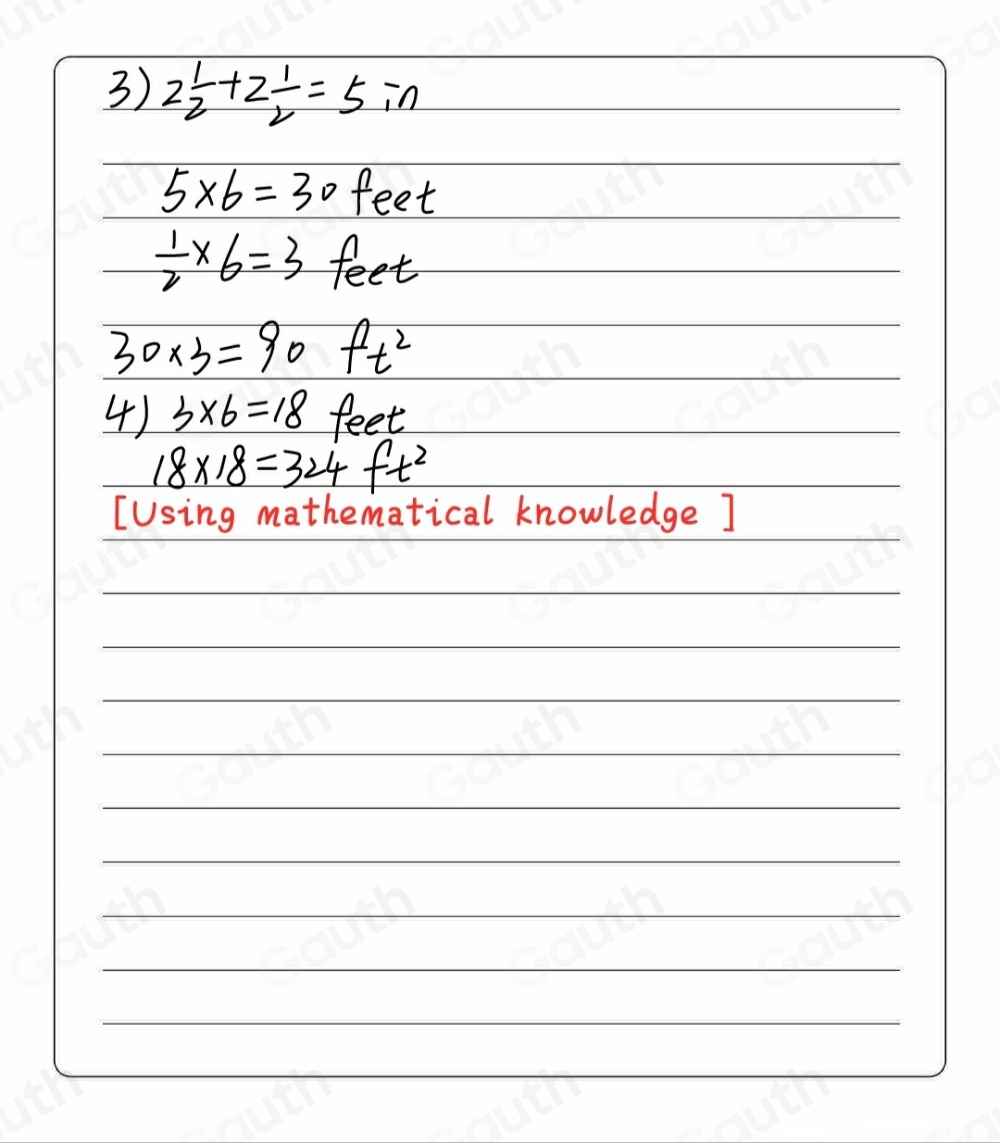 3) 2 1/2 + 2 1/2 = 5 in
5 × 6 = 30 feet
1/2 × 6 = 3 feet
30 × 3 = 90 ft²
4) 3 × 6 = 18 feet
18 × 18 = 324 ft²
[Using mathematical knowledge ]